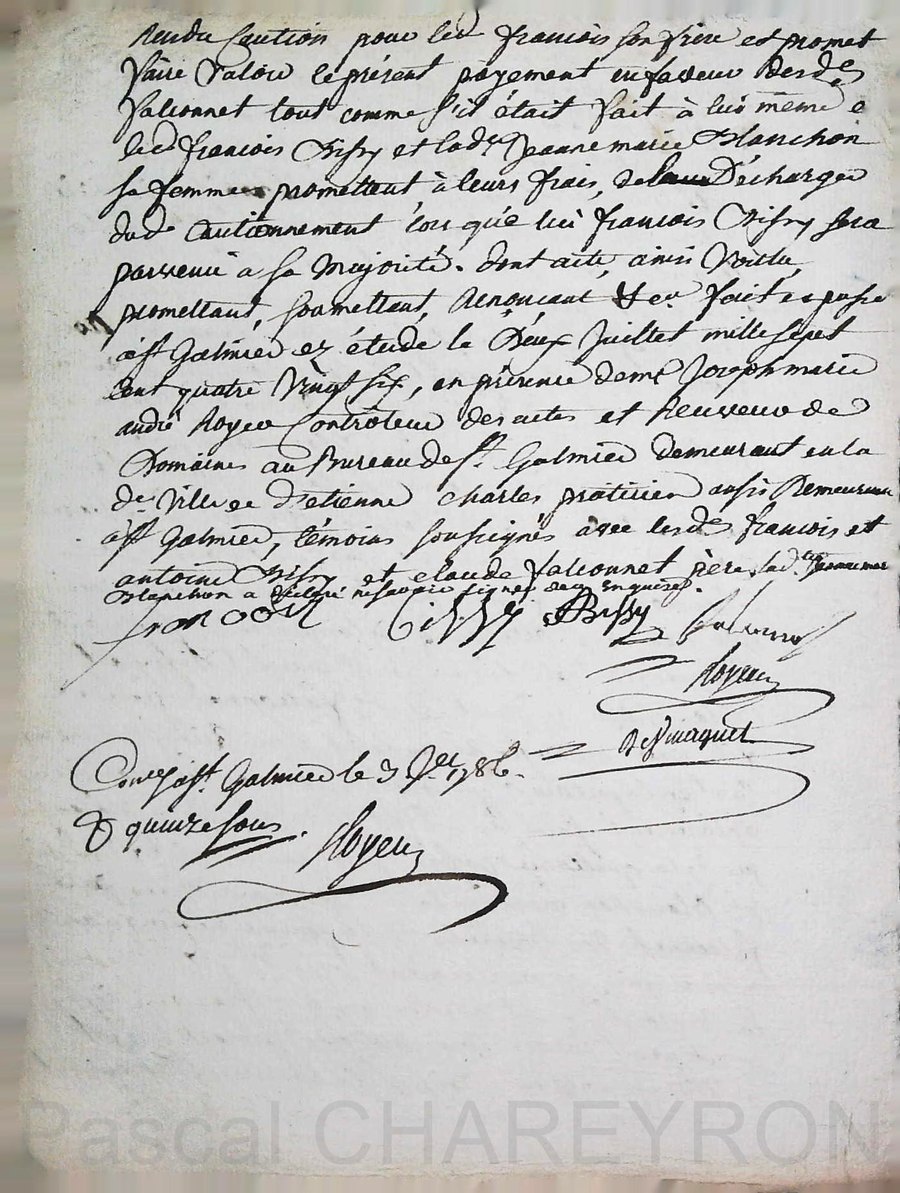 Rendu Caution pour led françois son frere et promet
faire valoir le présent payement en faveur desdes
Valconnet tout comme s'il était fait à lui même &
led françois Bissy et lade Jeanne marie Blanchon
sa femme promettant à leurs frais, de Décharger
dud Cautionnement lors que lui françois Bissy sera
parvenu a sa Majorité. dont acte, ainsi Voulu,
promettant, soumettant, Renoncant & ca fait et passé
à st Galmier ez étude le Deux Juillet mille sept
cent quatre Vingt six, en présence de me Joseph marie
andré Royer Controleur des actes et Receveur de
Domaines au Bureau de st Galmier Demeurant en la
de Ville et d'etienne Charles praticien aussi Demeurant
à st Galmier, témoins soussignés avec lesds françois et
antoine Bissy et claude Valconnet père, lade Jeanne mar
Blanchon a déclaré ne savoir signer de ce Enquise.
francois Bissy ABissy
Royer
Conlé a st. Galmier le 3 Jet 1786.
& quinze sous. Royer
Pascal CHAREYRON